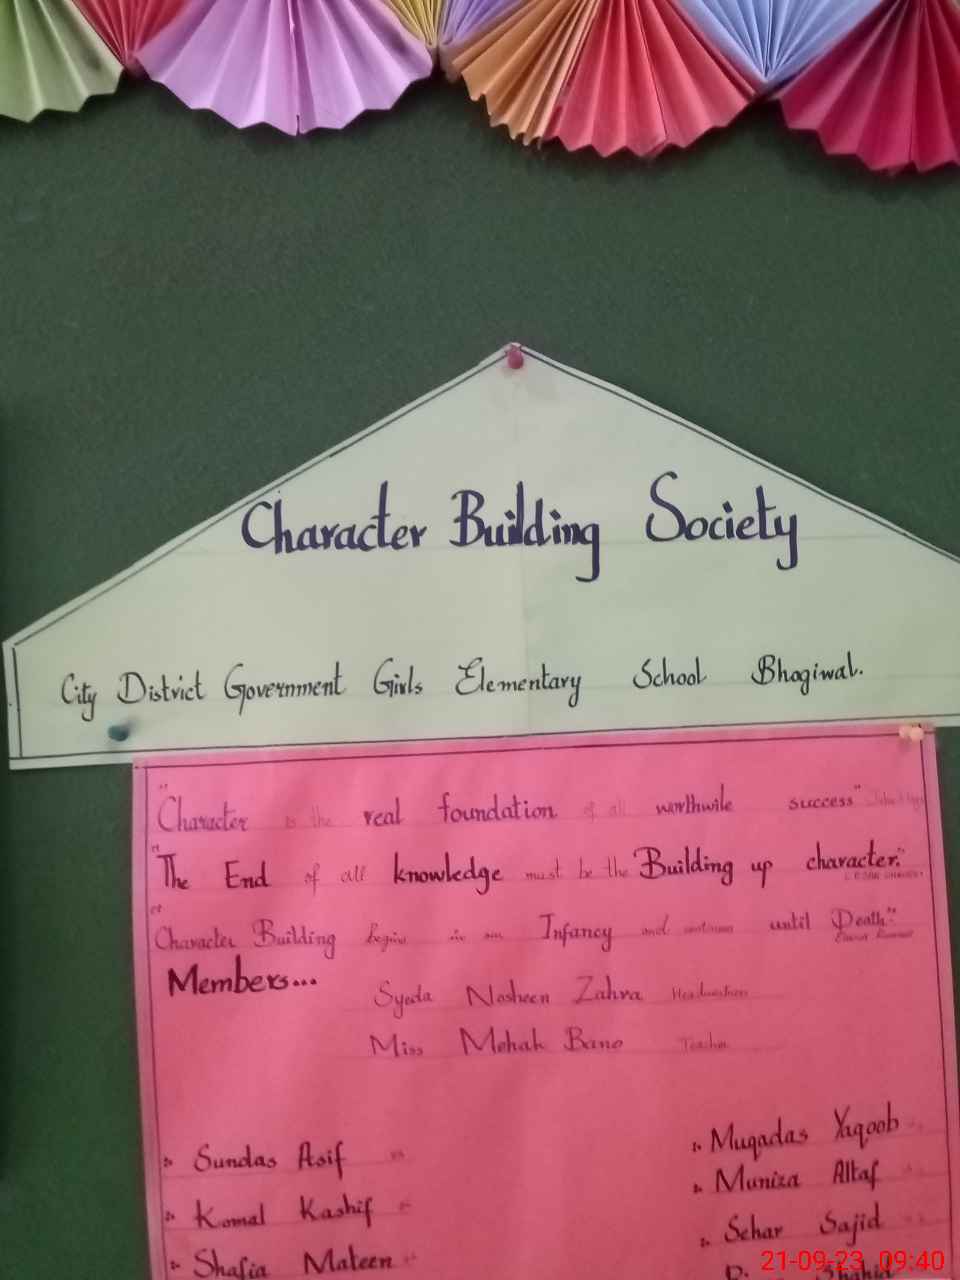 Character Building Society
City District Government Girls Elementary School Bhogiwal.
"Character is the real foundation of all worthwile success"
"The End of all knowledge must be the Building up character."
"Character Building begins in our Infancy and continues until Death."
Members...
Syeda Nosheen Zahra
Miss Mehak Bano Teacher
Sundas Asif
Komal Kashif
Shafia Mateen
Muqadas Yaqoob
Muniza Altaf
Sehar Sajid
21-09-23 09:40